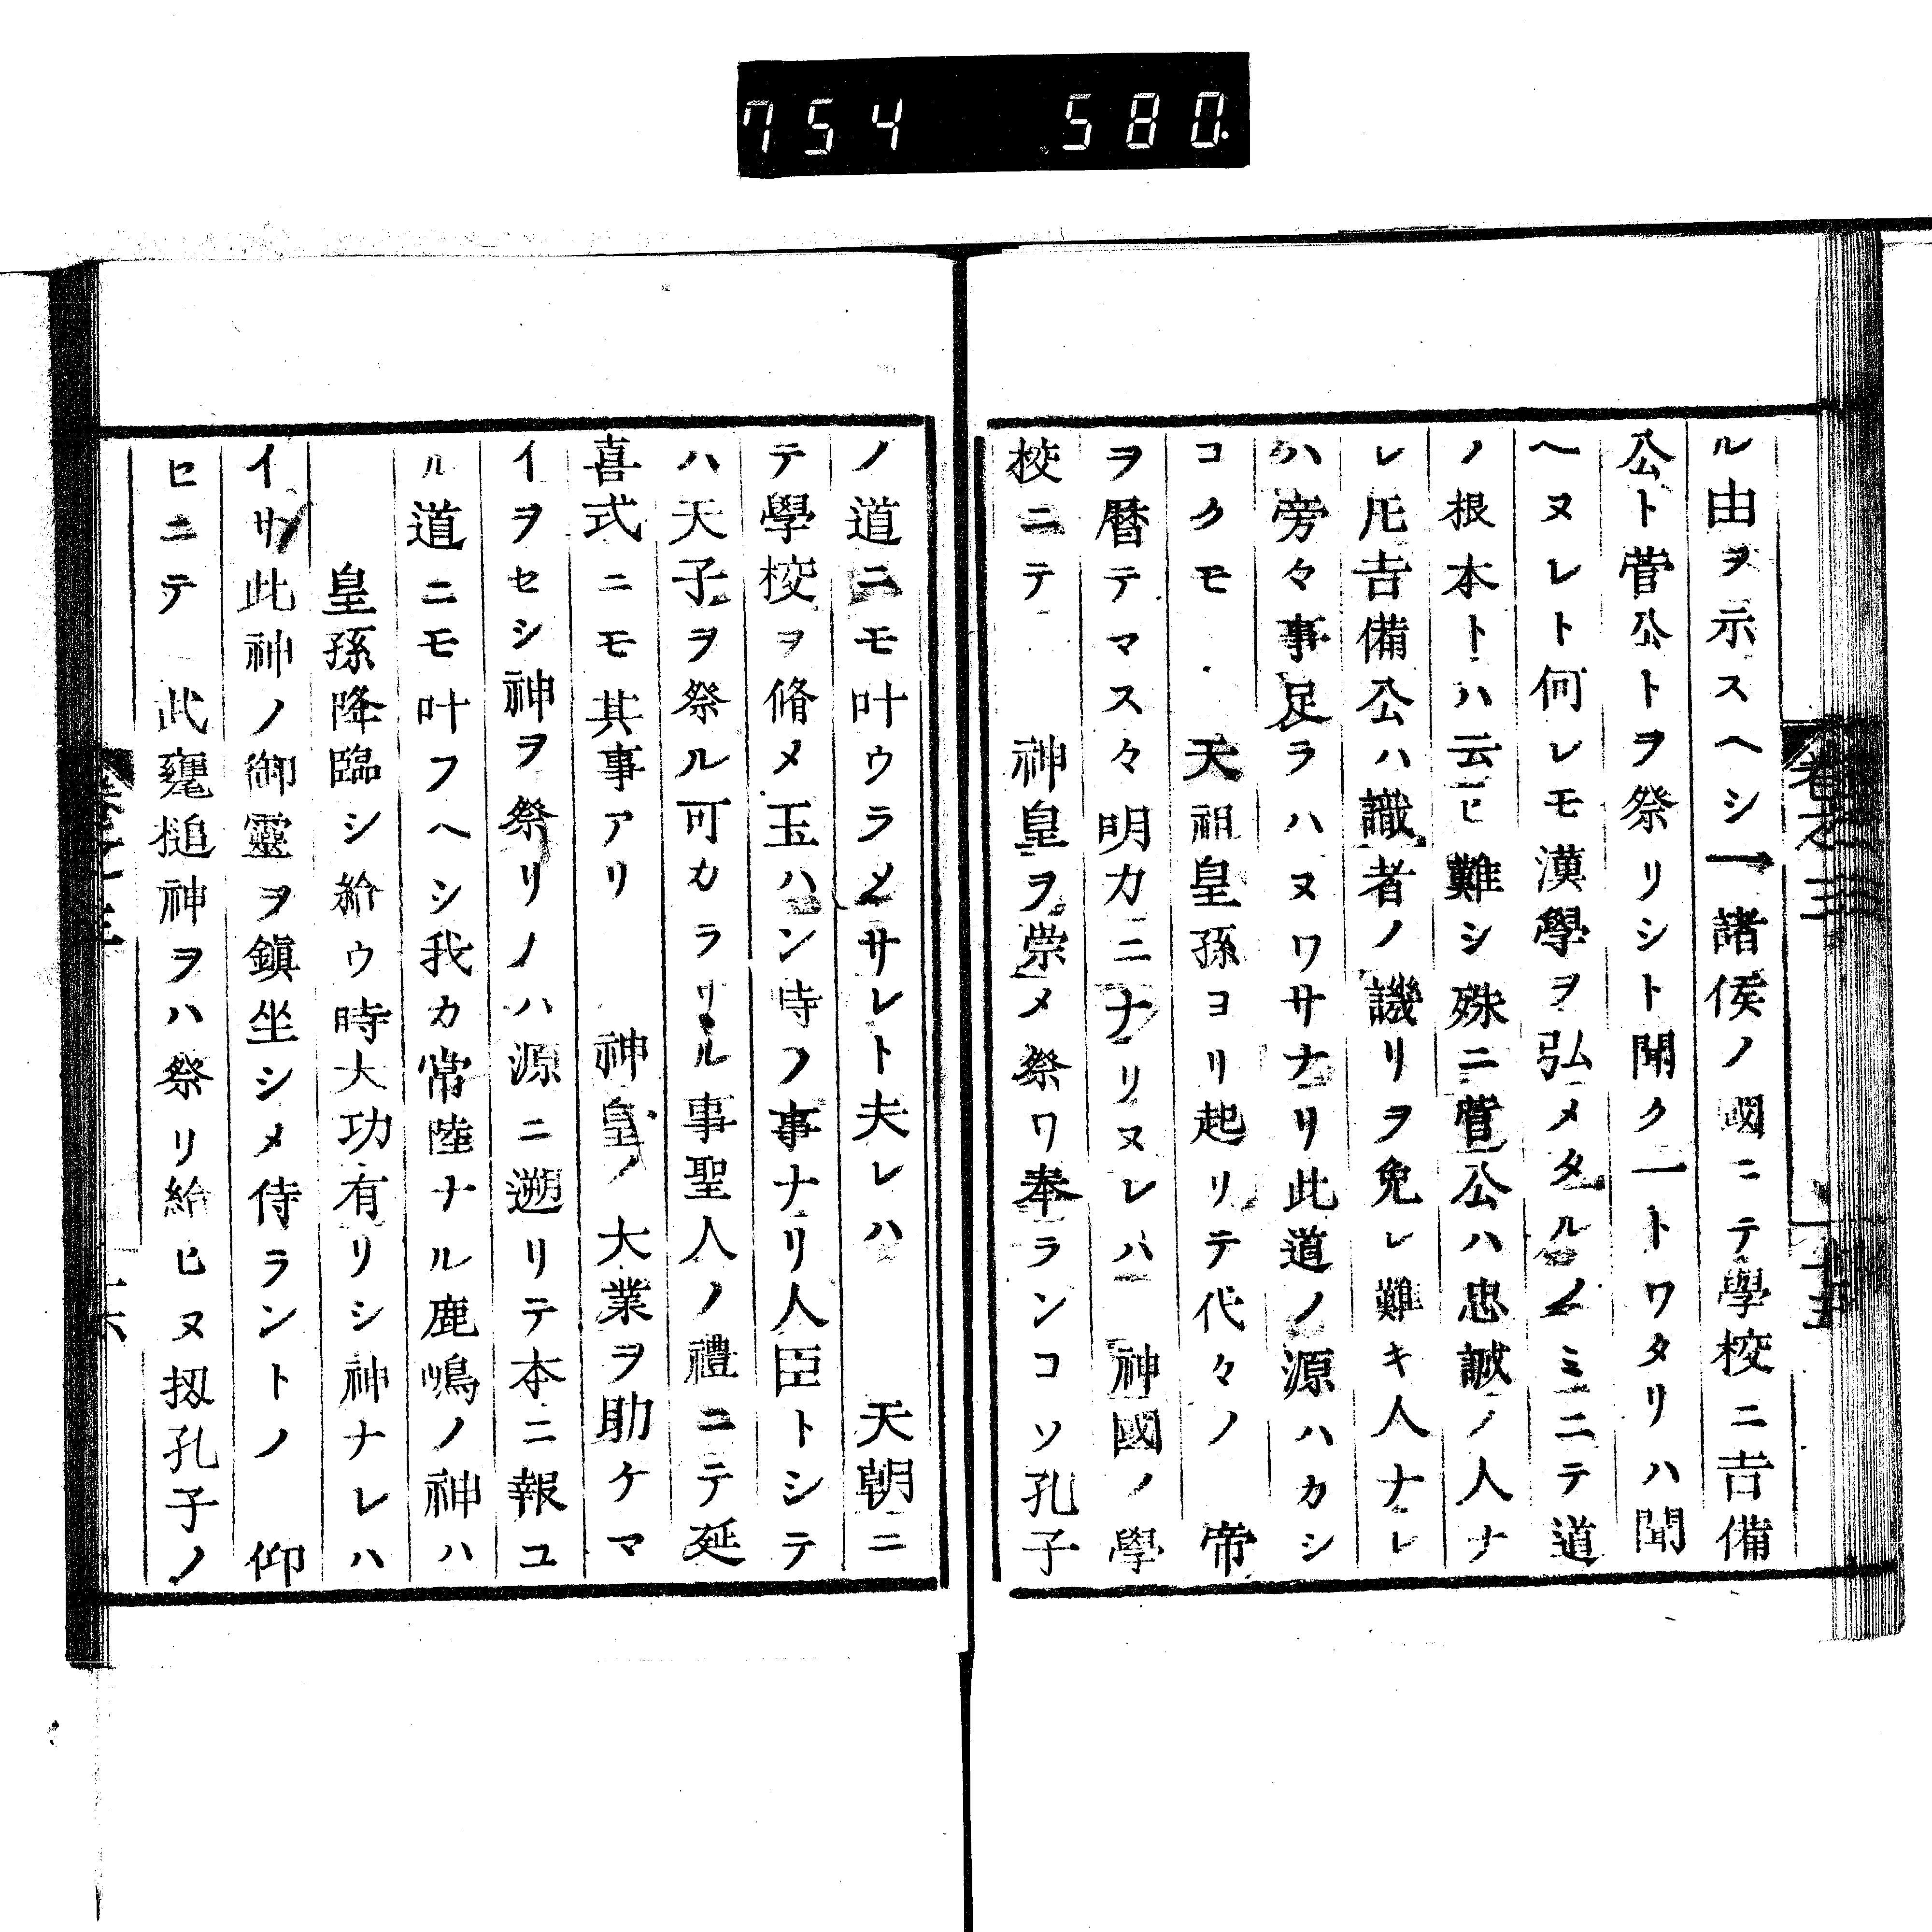 754 580
ル由ヲ示スヘシ一諸侯ノ國ニテ學校ニ吉備
公ト菅公トヲ祭リシト聞ク一トワタリハ聞
ヘヌレト何レモ漢學ヲ弘メタルノミニテ道
ノ根本トハ云ヒ難シ殊ニ菅公ハ忠誠ノ人ナ
レ𪜈吉備公ハ識者ノ譏リヲ免レ難キ人ナレ
ハ旁々事足ラハヌワサナリ此道ノ源ハカシ
コクモ 天祖皇孫ヨリ起リテ代々ノ 帝
ヲ暦テマス々明カニナリヌレハ 神國ノ學
校ニテ 神皇ヲ崇メ祭ワ奉ランコソ孔子
ノ道ニモ叶ウラメサレト夫レハ 天朝ニ
テ學校ヲ脩メ玉ハン時ノ事ナリ人臣トシテ
ハ天子ヲ祭ル可カラサル事聖人ノ禮ニテ延
喜式ニモ其事アリ 神皇ノ大業ヲ助ケマ
イヲセシ神ヲ祭リノハ源ニ遡リテ本ニ報ユ
ル道ニモ叶フヘシ我カ常陸ナル鹿嶋ノ神ハ
皇孫降臨シ給ウ時大功有リシ神ナレハ
イサ此神ノ御靈ヲ鎭坐シメ侍ラントノ 仰
セニテ 武甕槌神ヲハ祭リ給ヒヌ扨孔子ノ
卷之三
十五